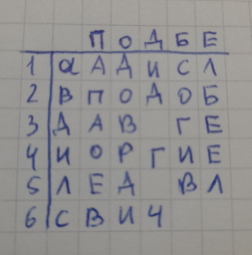 П О Д Б Е
1 а А Д И С Л
2 В П О Д О Б
3 Д А В Г Е
4 И О Р Г И Е
5 Л Е Д В Л
6 С В И Ч